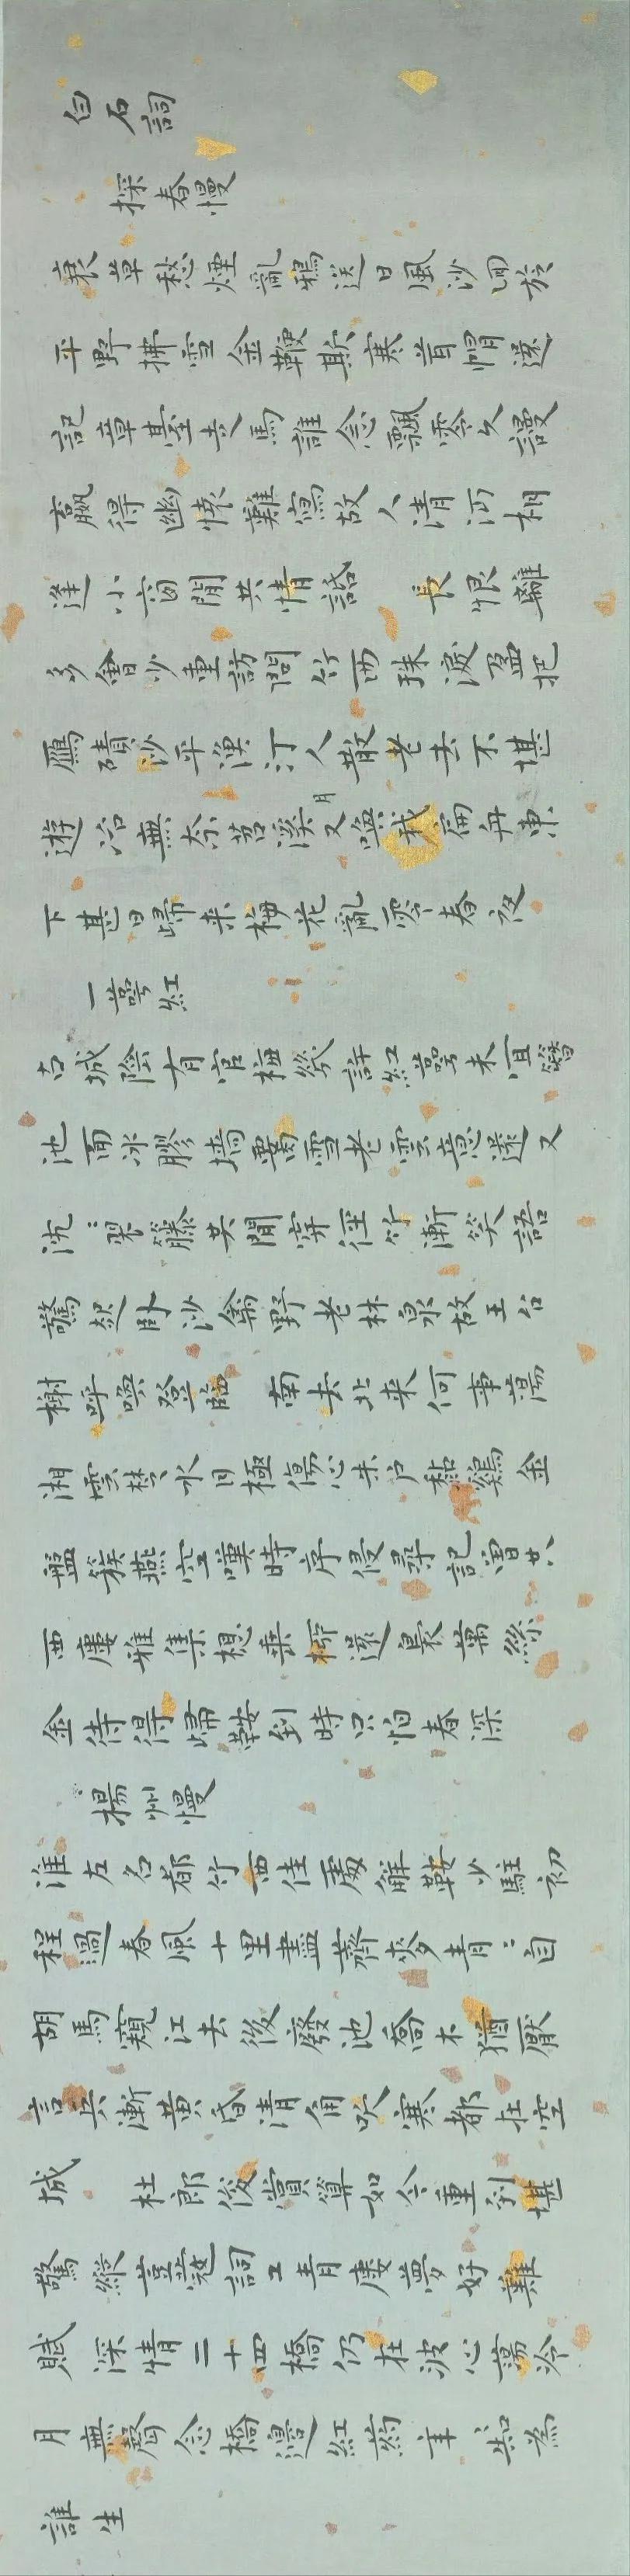 白石詞
探春慢
衰草愁煙亂鴉送日風沙回於
平野拂雪金鞭欺寒茸帽還
記章臺走馬誰念飄零久謾
嬴得幽懷難寫故人清沔相
逢小窗閒共情話 長恨離
多會少重訪問竹西珠淚盈把
雁磧沙平漁汀人散老去不堪
遊冶無奈苕溪月又喚我扁舟東
下甚日歸来梅花亂零春夜
一萼紅
古城陰有官梅幾許紅萼未宜簪
池面冰膠墻腰雪老雲意還又
沈〻翠藤共閒穿徑竹漸笑語
驚起卧沙禽野老林泉故王台
榭呼喚登臨 南去北来何事蕩
湘雲楚水目極傷心朱户黏鷄金
盤簇燕空嘆時序侵尋記曾共
西廔雅集想垂柳還裊萬絲
金待得歸鞍到時只怕春深
揚州慢
淮左名都竹西佳處解鞍少駐初
程過春風十里盡薺麥青〻自
胡馬窺江去後廢池喬木猶厭
言兵漸黃昏清角吹寒都在空
城 杜郎俊賞算如今重到堪
驚縱荳蔻詞工青廔夢好難
賦深情二十四橋仍在波心蕩冷
月無聲念橋邊紅葯年〻知為
誰生